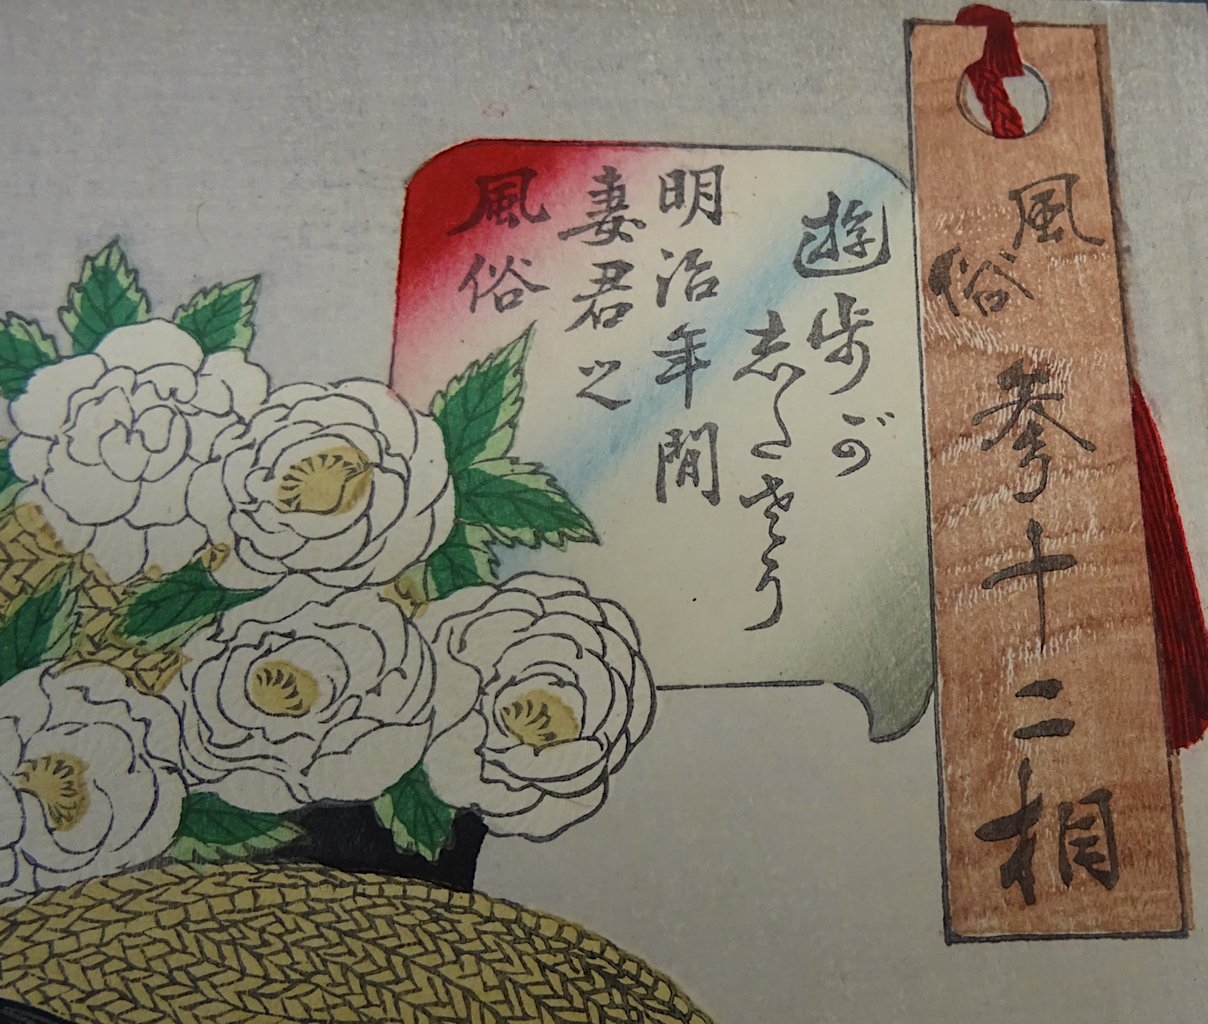 風俗參十二相
遊歩が
志たさう
明治年間
妻君之
風俗